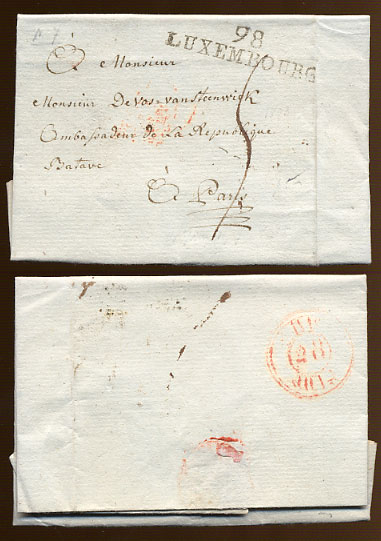 P. P.
98
LUXEMBOURG
À Monsieur
Monsieur De vos-van Steenwijk
Ambassadeur de La Republique
Batave
À Paris